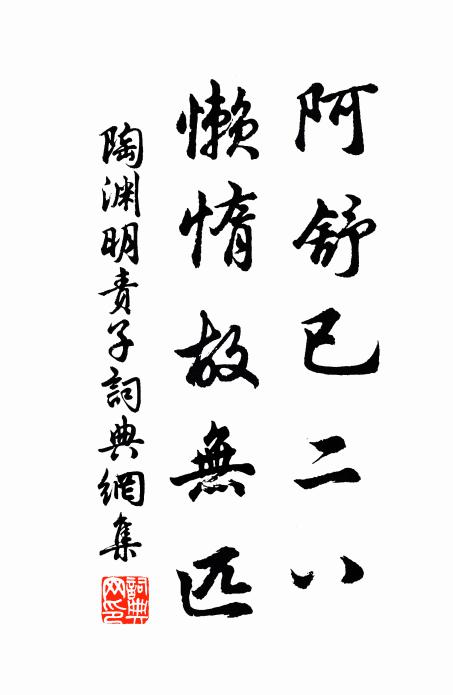 阿舒已二八
懒惰故無匹
陶渊明責子詞典網集
詞典網印